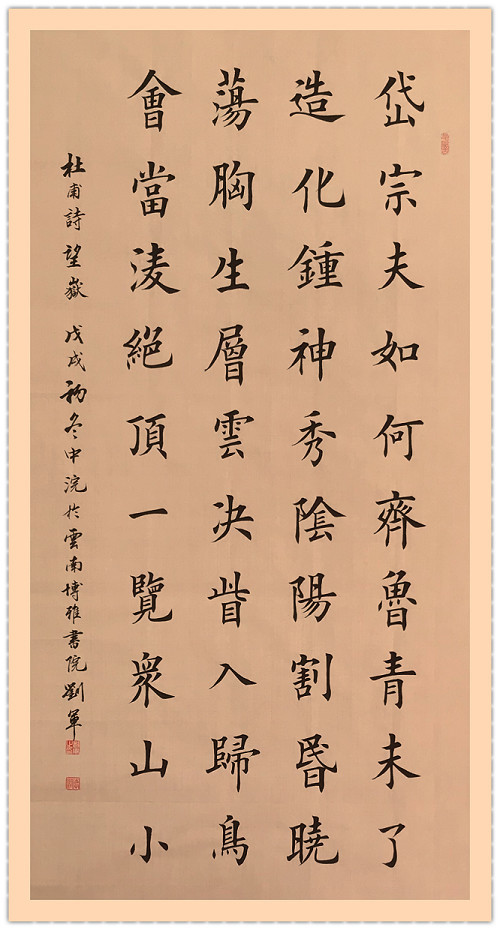 岱宗夫如何齊魯青未了
造化鍾神秀陰陽割昬曉
蕩胸生層雲决眥入歸鳥
會當淩絶頂一覽衆山小
杜甫詩望嶽 戊戌初冬中浣於雲南博雅書院劉軍